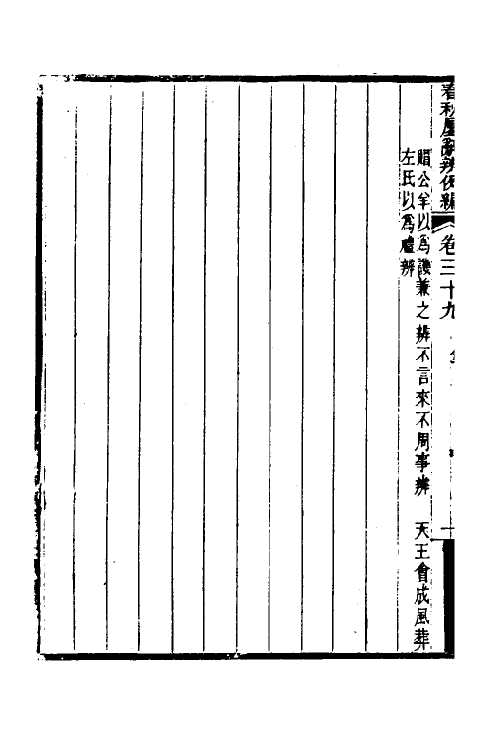 春秋屬辭辨例編 卷三十九
賵公羊以為譏兼之辨不言來不周事辨 天王會成風葬
左氏以為禮辨